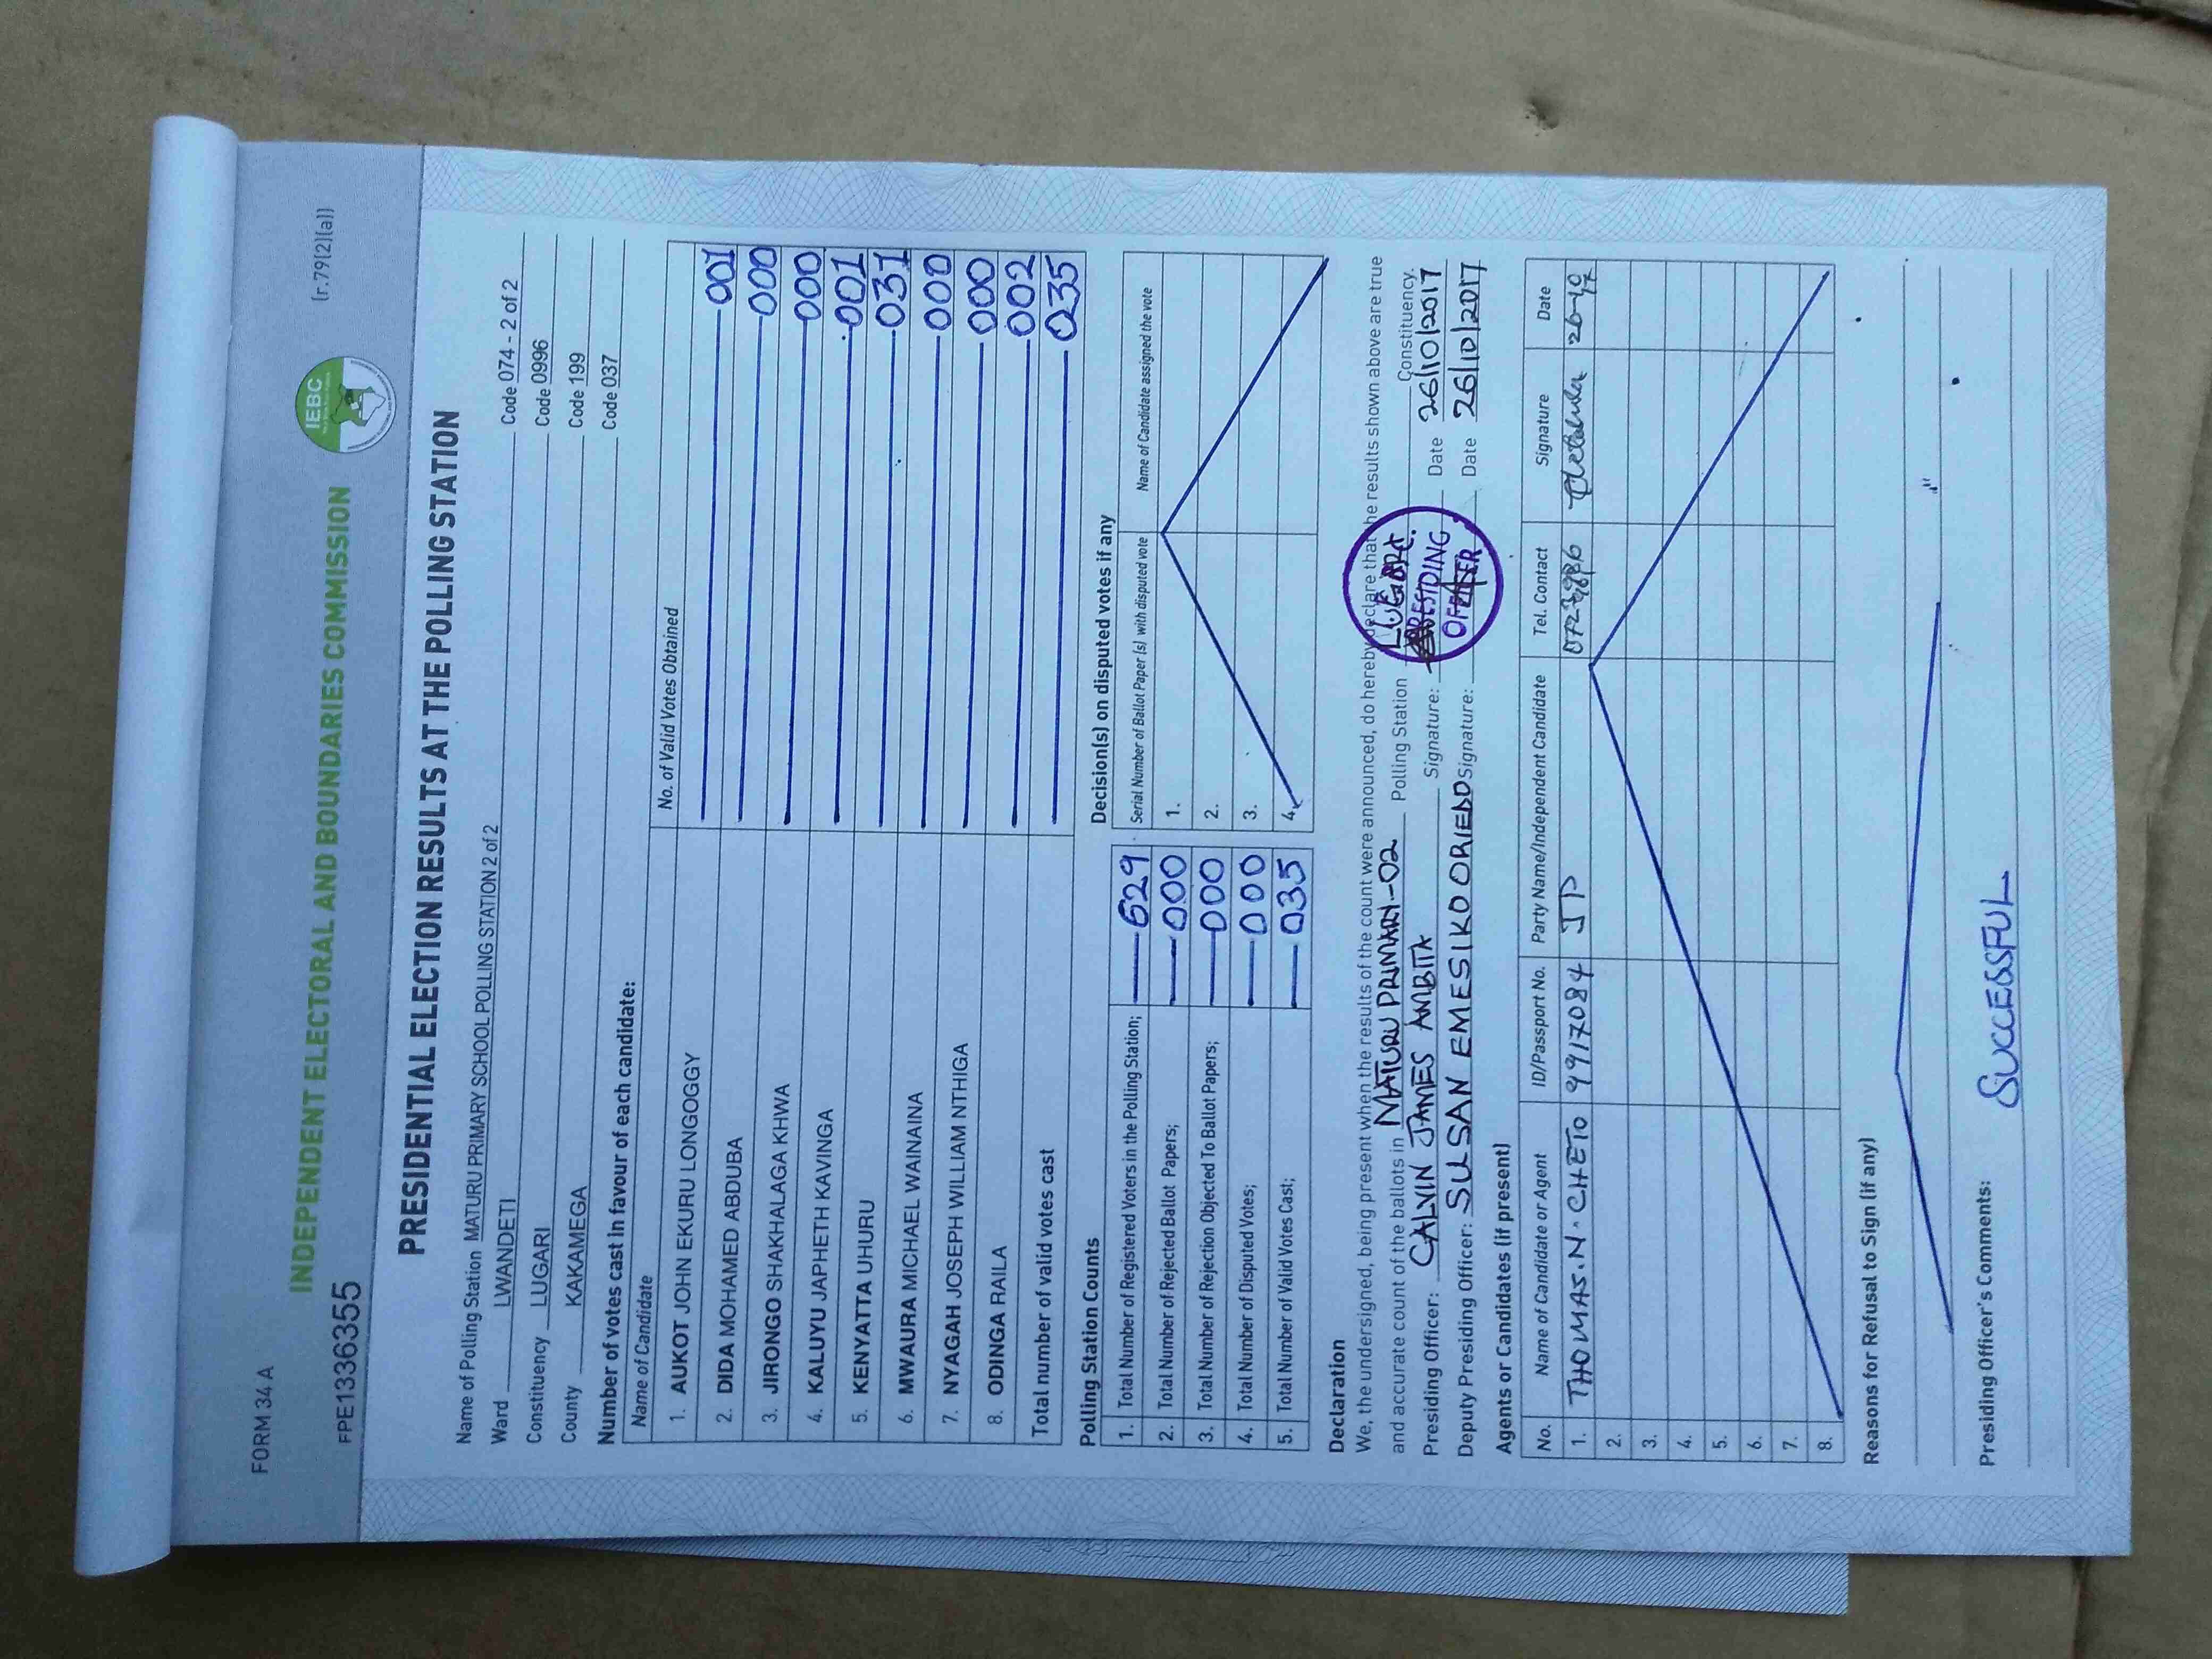 FORM 34 A
(r.79(2)(a))
INDEPENDENT ELECTORAL AND BOUNDARIES COMMISSION
IEBC
FPE1336355
PRESIDENTIAL ELECTION RESULTS AT THE POLLING STATION
Name of Polling Station MATURU PRIMARY SCHOOL POLLING STATION 2 of 2 Code 074 - 2 of 2
Ward LWANDETI Code 0996
Constituency LUGARI Code 199
County KAKAMEGA Code 037
Number of votes cast in favour of each candidate:
Name of Candidate No. of Valid Votes Obtained
1. AUKOT JOHN EKURU LONGOGGY 001
2. DIDA MOHAMED ABDUBA 000
3. JIRONGO SHAKHALAGA KHWA 000
4. KALUYU JAPHETH KAVINGA 001
5. KENYATTA UHURU 031
6. MWAURA MICHAEL WAINAINA 000
7. NYAGAH JOSEPH WILLIAM NTHIGA 000
8. ODINGA RAILA 002
Total number of valid votes cast 035
Polling Station Counts
1. Total Number of Registered Voters in the Polling Station; 629
2. Total Number of Rejected Ballot Papers; 000
3. Total Number of Rejection Objected To Ballot Papers; 000
4. Total Number of Disputed Votes; 000
5. Total Number of Valid Votes Cast; 035
Decision(s) on disputed votes if any
Serial Number of Ballot Paper (s) with disputed vote Name of Candidate assigned the vote
1.
2.
3.
4.
Declaration
We, the undersigned, being present when the results of the count were announced, do hereby declare that the results shown above are true
and accurate count of the ballots in MATURU PRIMARY-02 Polling Station LUGARI Constituency.
Presiding Officer: CALVIN JAMES AMBITA Signature: Date 26/10/2017
Deputy Presiding Officer: SUSAN EMESIKO ORIEDO Signature: Date 26/10/2017
PRESIDING
OFFICER
Agents or Candidates (if present)
No. Name of Candidate or Agent ID/Passport No. Party Name/Independent Candidate Tel. Contact Signature Date
1. THOMAS.N.CHETO 9917084 JP 26-10
2.
3.
4.
5.
6.
7.
8.
Reasons for Refusal to Sign (if any)
Presiding Officer's Comments:
SUCCESSFUL